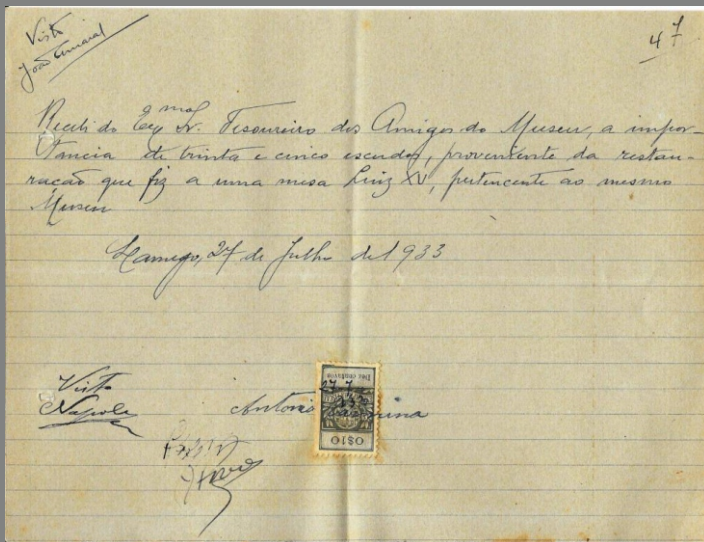 Visto
João Amaral
47
Recebi do Exmo Sr. Tesoureiro dos Amigos do Museu, a impor-
tancia de trinta e cinco escudos, proveniente da restau-
ração que fiz a uma mesa Luiz XV, pertencente ao mesmo
Museu
Lamego, 27 de Julho de 1933
Visto
Napoles
Dez centavos
27-7
33
Antonio
0$10